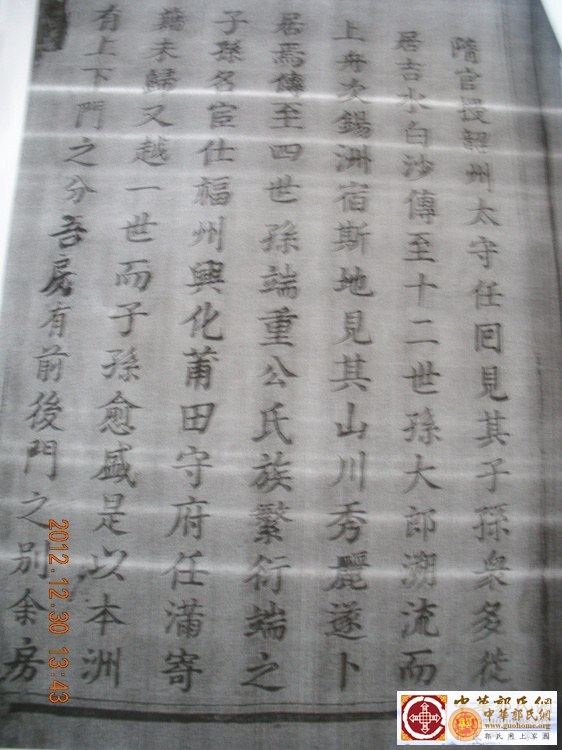 隋官授韶州太守任回見其子孫衆多徙
居吉水白沙傳至十二世孫大郎溯流而
上舟次錫洲宿斯地見其山川秀麗遂卜
居焉傳至四世孫端重公氏族繫衍端之
子孫名宦仕福州興化莆田守府任滿寄
籍未歸又越一世而子孫愈盛是以本洲
有上下門之分吾房有前後門之別余房
2012.12.30 13:43
中華郭氏網
中華郭氏網
www.guohome.org
郭氏網上家園